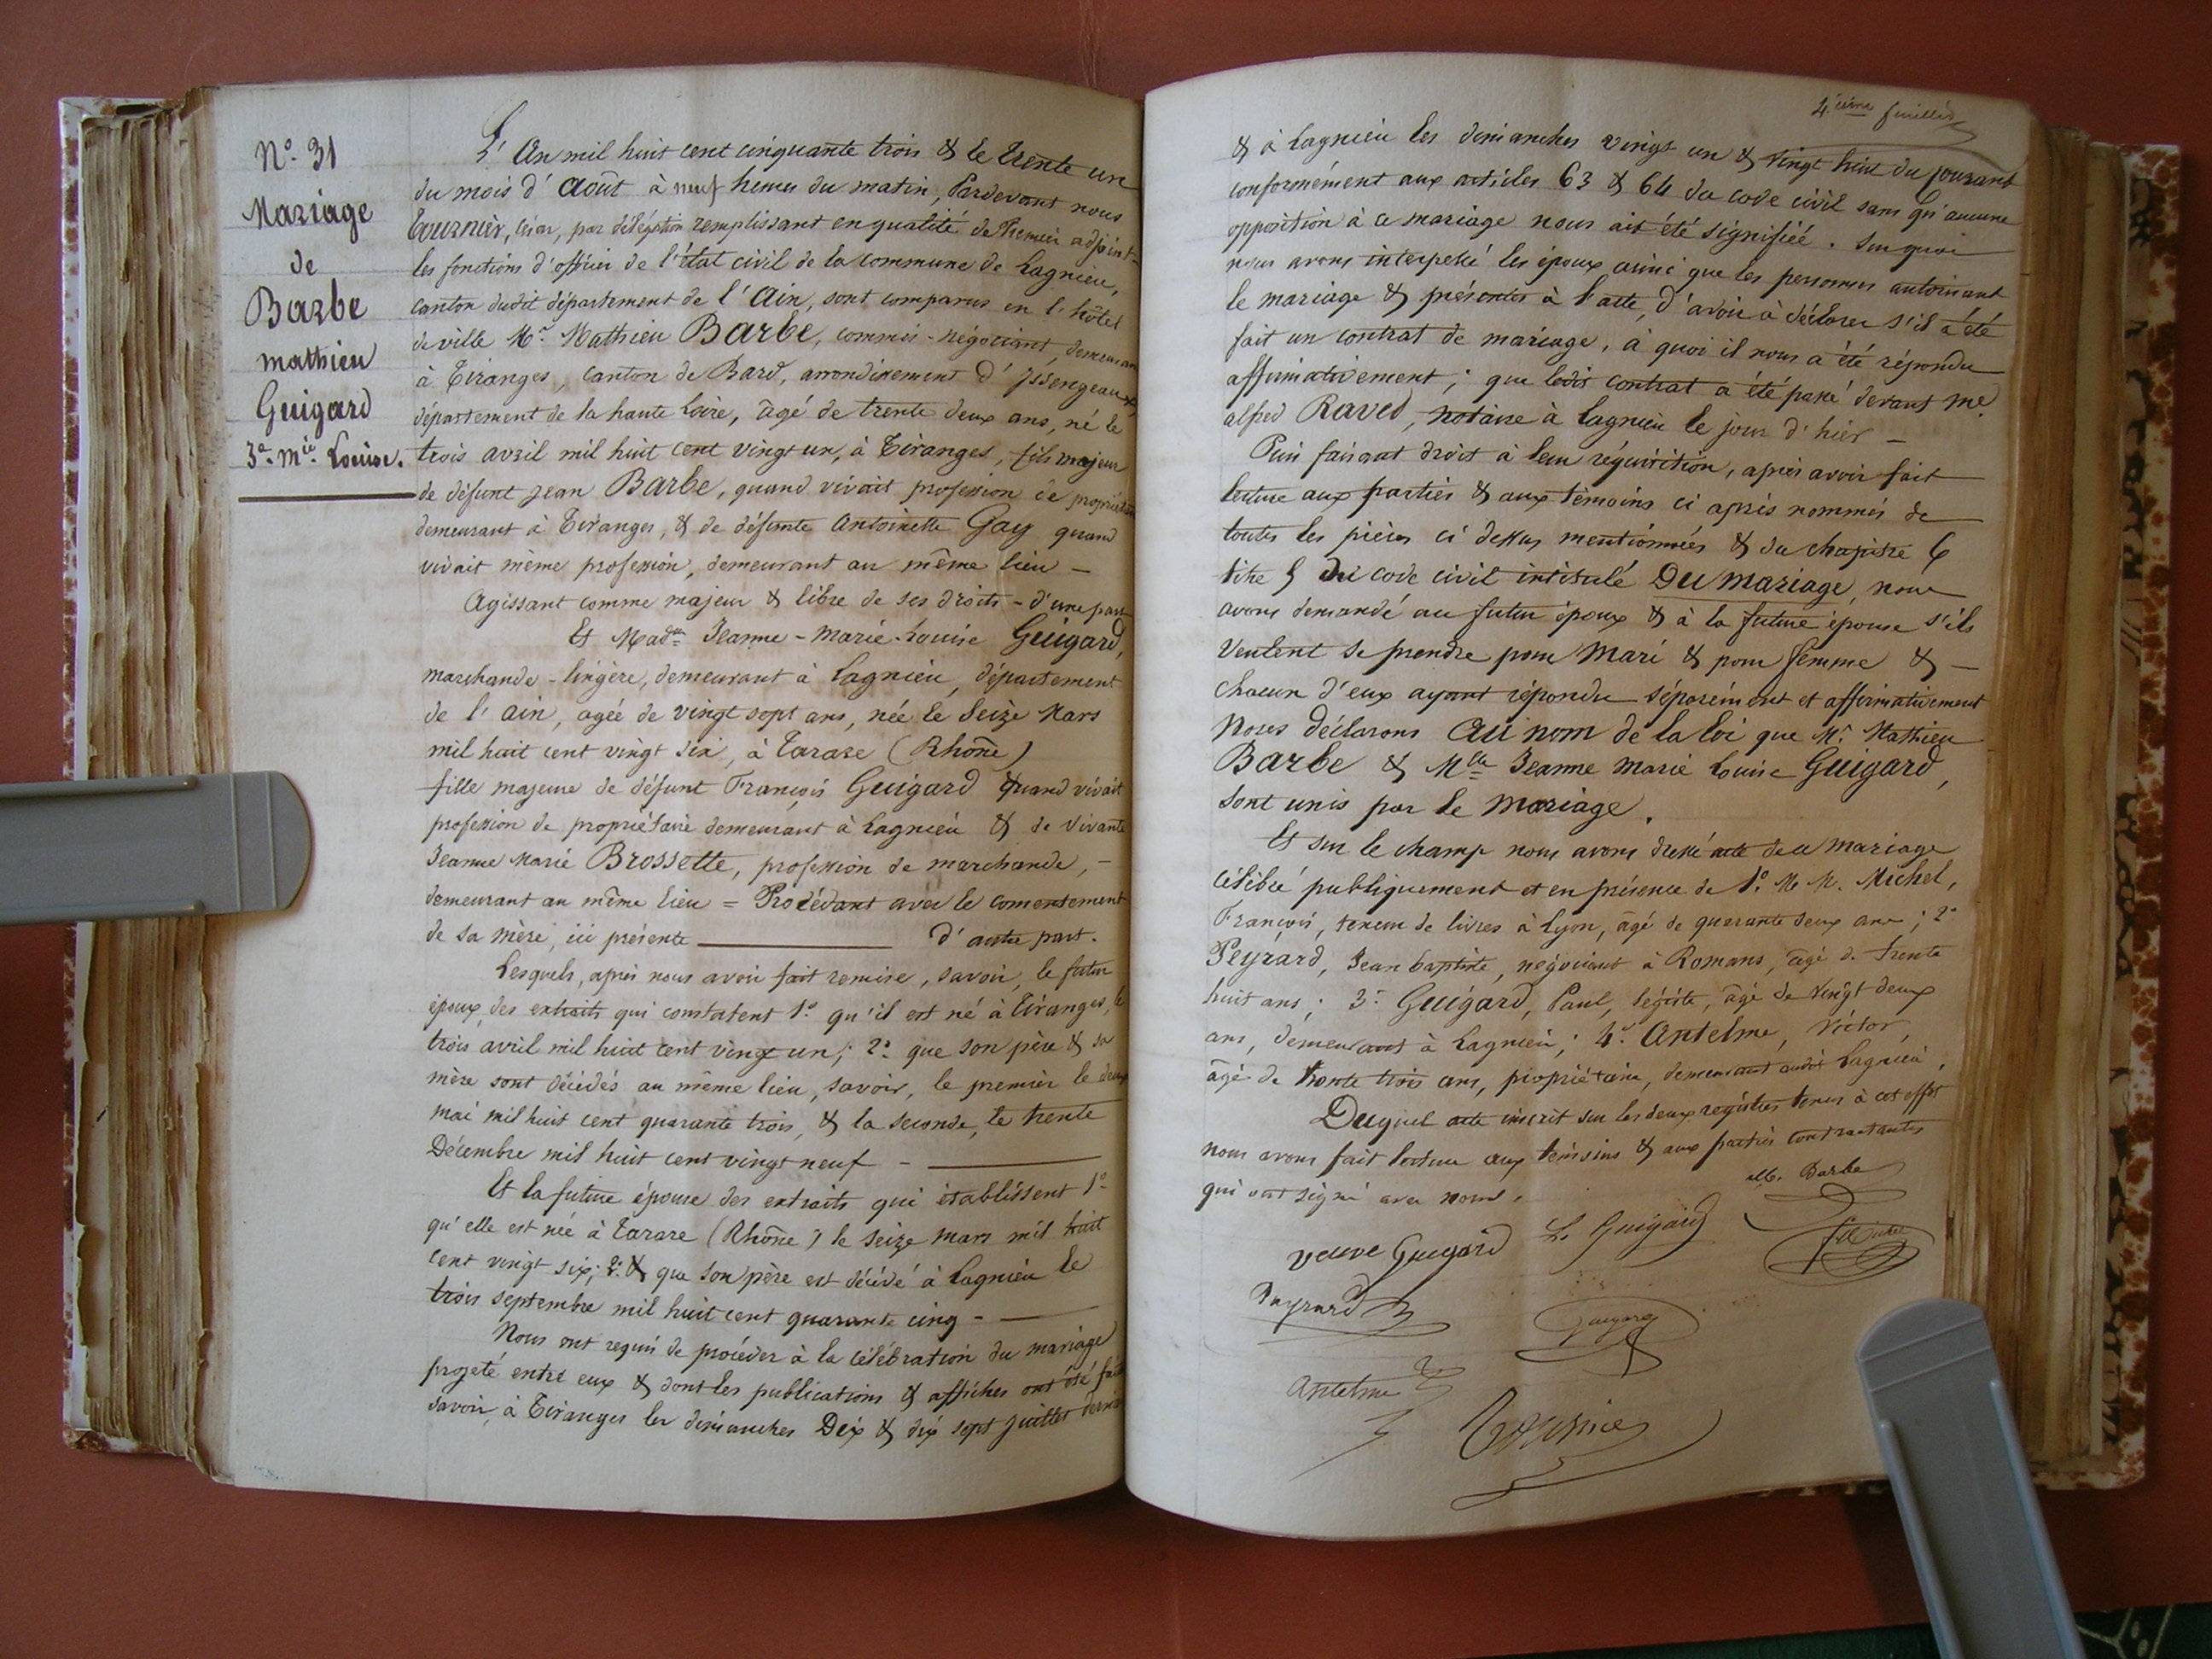 No. 31
Mariage
de
Barbe
mathieu
Guigard
Je. Mie. Louise.
L'An mil huit cent cinquante trois & le trente un
du mois d'Août à neuf heures du matin, Pardevant nous
Tournier, César, par délégation remplissant en qualité de Premier adjoint
les fonctions d'officier de l'état civil de la commune de Lagnieu,
canton dudit département de l'Ain, sont comparus en l'hôtel
de ville Mr. Mathieu Barbe, commis-négociant, demeurant
à Tiranges, canton de Bard, arrondissement d'Issengeaux,
département de la haute Loire, âgé de trente deux ans, né le
trois avril mil huit cent vingt un, à Tiranges, fils majeur
de défunt Jean Barbe, quand vivait profession de propriétaire
demeurant à Tiranges, & de défunte Antoinette Gay quand
vivait même profession, demeurant au même lieu –
Agissant comme majeur & libre de ses droits – d'une part
Et Madlle Jeanne-Marie-Louise Guigard,
marchande-lingère, demeurant à Lagnieu, département
de l'ain, agée de vingt sept ans, née le Seize Mars
mil huit cent vingt six, à Tarare (Rhône)
fille majeure de défunt François Guigard quand vivait
profession de propriétaire demeurant à Lagnieu & de vivante
Jeanne Marie Brossette, profession de marchande, –
demeurant au même lieu = Procédant avec le consentement
de sa mère, ici présente d'autre part.
Lesquels, après nous avoir fait remise, savoir, le futur
époux, des extraits qui constatent 1o. qu'il est né à Tiranges, le
trois avril mil huit cent vingt un; 2o. que son père & sa
mère sont décédés au même lieu, savoir, le premier le deux
mai mil huit cent quarante trois, & la seconde, le trente
Décembre mil huit cent vingt neuf –
Et la future épouse des extraits qui établissent 1o.
qu'elle est née à Tarare (Rhône) le seize mars mil huit
cent vingt six; 2o. & que son père est décédé à Lagnieu le
trois septembre mil huit cent quarante cinq –
Nous ont requis de procéder à la célébration du mariage
projeté entre eux & dont les publications & affiches ont été faites
savoir, à Tiranges les dimanches Dix & dix sept juillet dernier
4.ième feuillet
& à Lagnieu les dimanches vingt un & vingt huit du courant
conformément aux articles 63 & 64 du code civil sans qu'aucune
opposition à ce mariage nous ait été signifiée. Sur quoi
nous avons interpellé les époux ainsi que les personnes autorisant
le mariage & présentes à l'acte, d'avoir à déclarer s'il a été
fait un contrat de mariage, à quoi il nous a été répondu
affirmativement; que ledit contrat a été passé devant Me.
alfred Raved, notaire à Lagnieu le jour d'hier –
Puis faisant droit à leur réquisition, après avoir fait
lecture aux parties & aux témoins ci après nommés de
toutes les pièces ci dessus mentionnées & du chapitre 6
titre 5 du code civil intitulé Du mariage, nous
avons demandé au futur époux & à la future épouse s'ils
veulent se prendre pour Mari & pour femme & –
chacun d'eux ayant répondu séparément et affirmativement
Nous déclarons Au nom de la loi que Mr. Mathieu
Barbe & Mlle Jeanne Marie Louise Guigard,
sont unis par le Mariage.
Et sur le champ nous avons dressé acte de ce mariage
célébré publiquement et en présence de 1o. M. M. Michel,
François, teneur de livres à Lyon, âgé de quarante deux ans; 2o
Peyrard, Jean baptiste, négociant à Romans, âgé de trente
huit ans; 3o. Guigard, Paul, légiste, âgé de vingt deux
ans, demeurant à Lagnieu; 4o. Antelme, Victor,
âgé de trente trois ans, propriétaire, demeurant audit Lagnieu,
Duquel acte inscrit sur les deux registres tenus à cet effet
nous avons fait lecture aux témoins & aux parties contractantes
qui ont signé avec nous.
M. Barbe
veuve Guigard
L. Guigard
Peyrard
Guigard
Antelme
Tournier